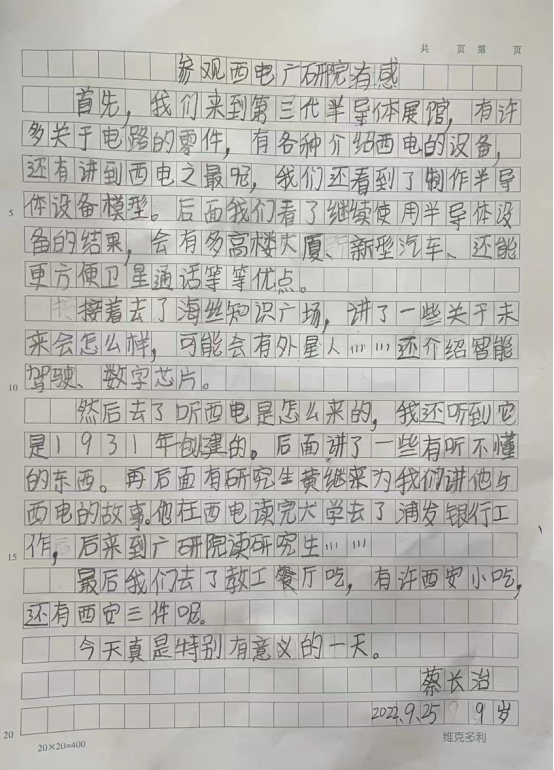 共 页 第 页
参观西电广研院有感
首先，我们来到第三代半导体展馆，有许
多关于电路的零件，有各种介绍西电的设备，
还有讲到西电之最呢，我们还看到了制作半导
5 体设备模型。后面我们看了继续使用半导体设
备的结果，会有多高楼大厦、新型汽车、还能
更方便卫星通话等等优点。
接着去了海丝知识广场，讲了一些关于未
来会怎么样，可能会有外星人……还介绍智能
10 驾驶、数字芯片。
然后去了听西电是怎么来的，我还听到它
是1931年创建的。后面讲了一些有听不懂
的东西。再后面有研究生黄继来为我们讲他与
西电的故事。他在西电读完大学去了浦发银行工
15 作，后来到广研院读研究生……
最后我们去了教工餐厅吃，有许西安小吃，
还有西安三件呢。
今天真是特别有意义的一天。
蔡长治
2022.9.25 9岁
20
20×20=400 维克多利